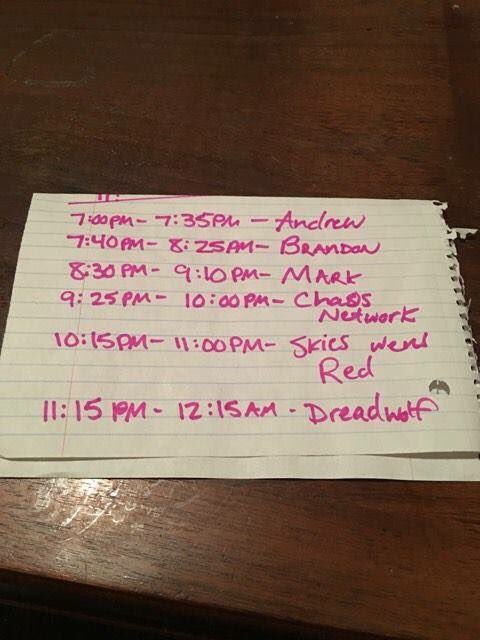 7:00PM - 7:35PM - Andrew
7:40PM - 8:25PM - BRANDON
8:30PM - 9:10PM - MARK
9:25PM - 10:00PM - Chaos
Network
10:15PM - 11:00PM - Skies went
Red
11:15 PM - 12:15AM - Dreadwolf